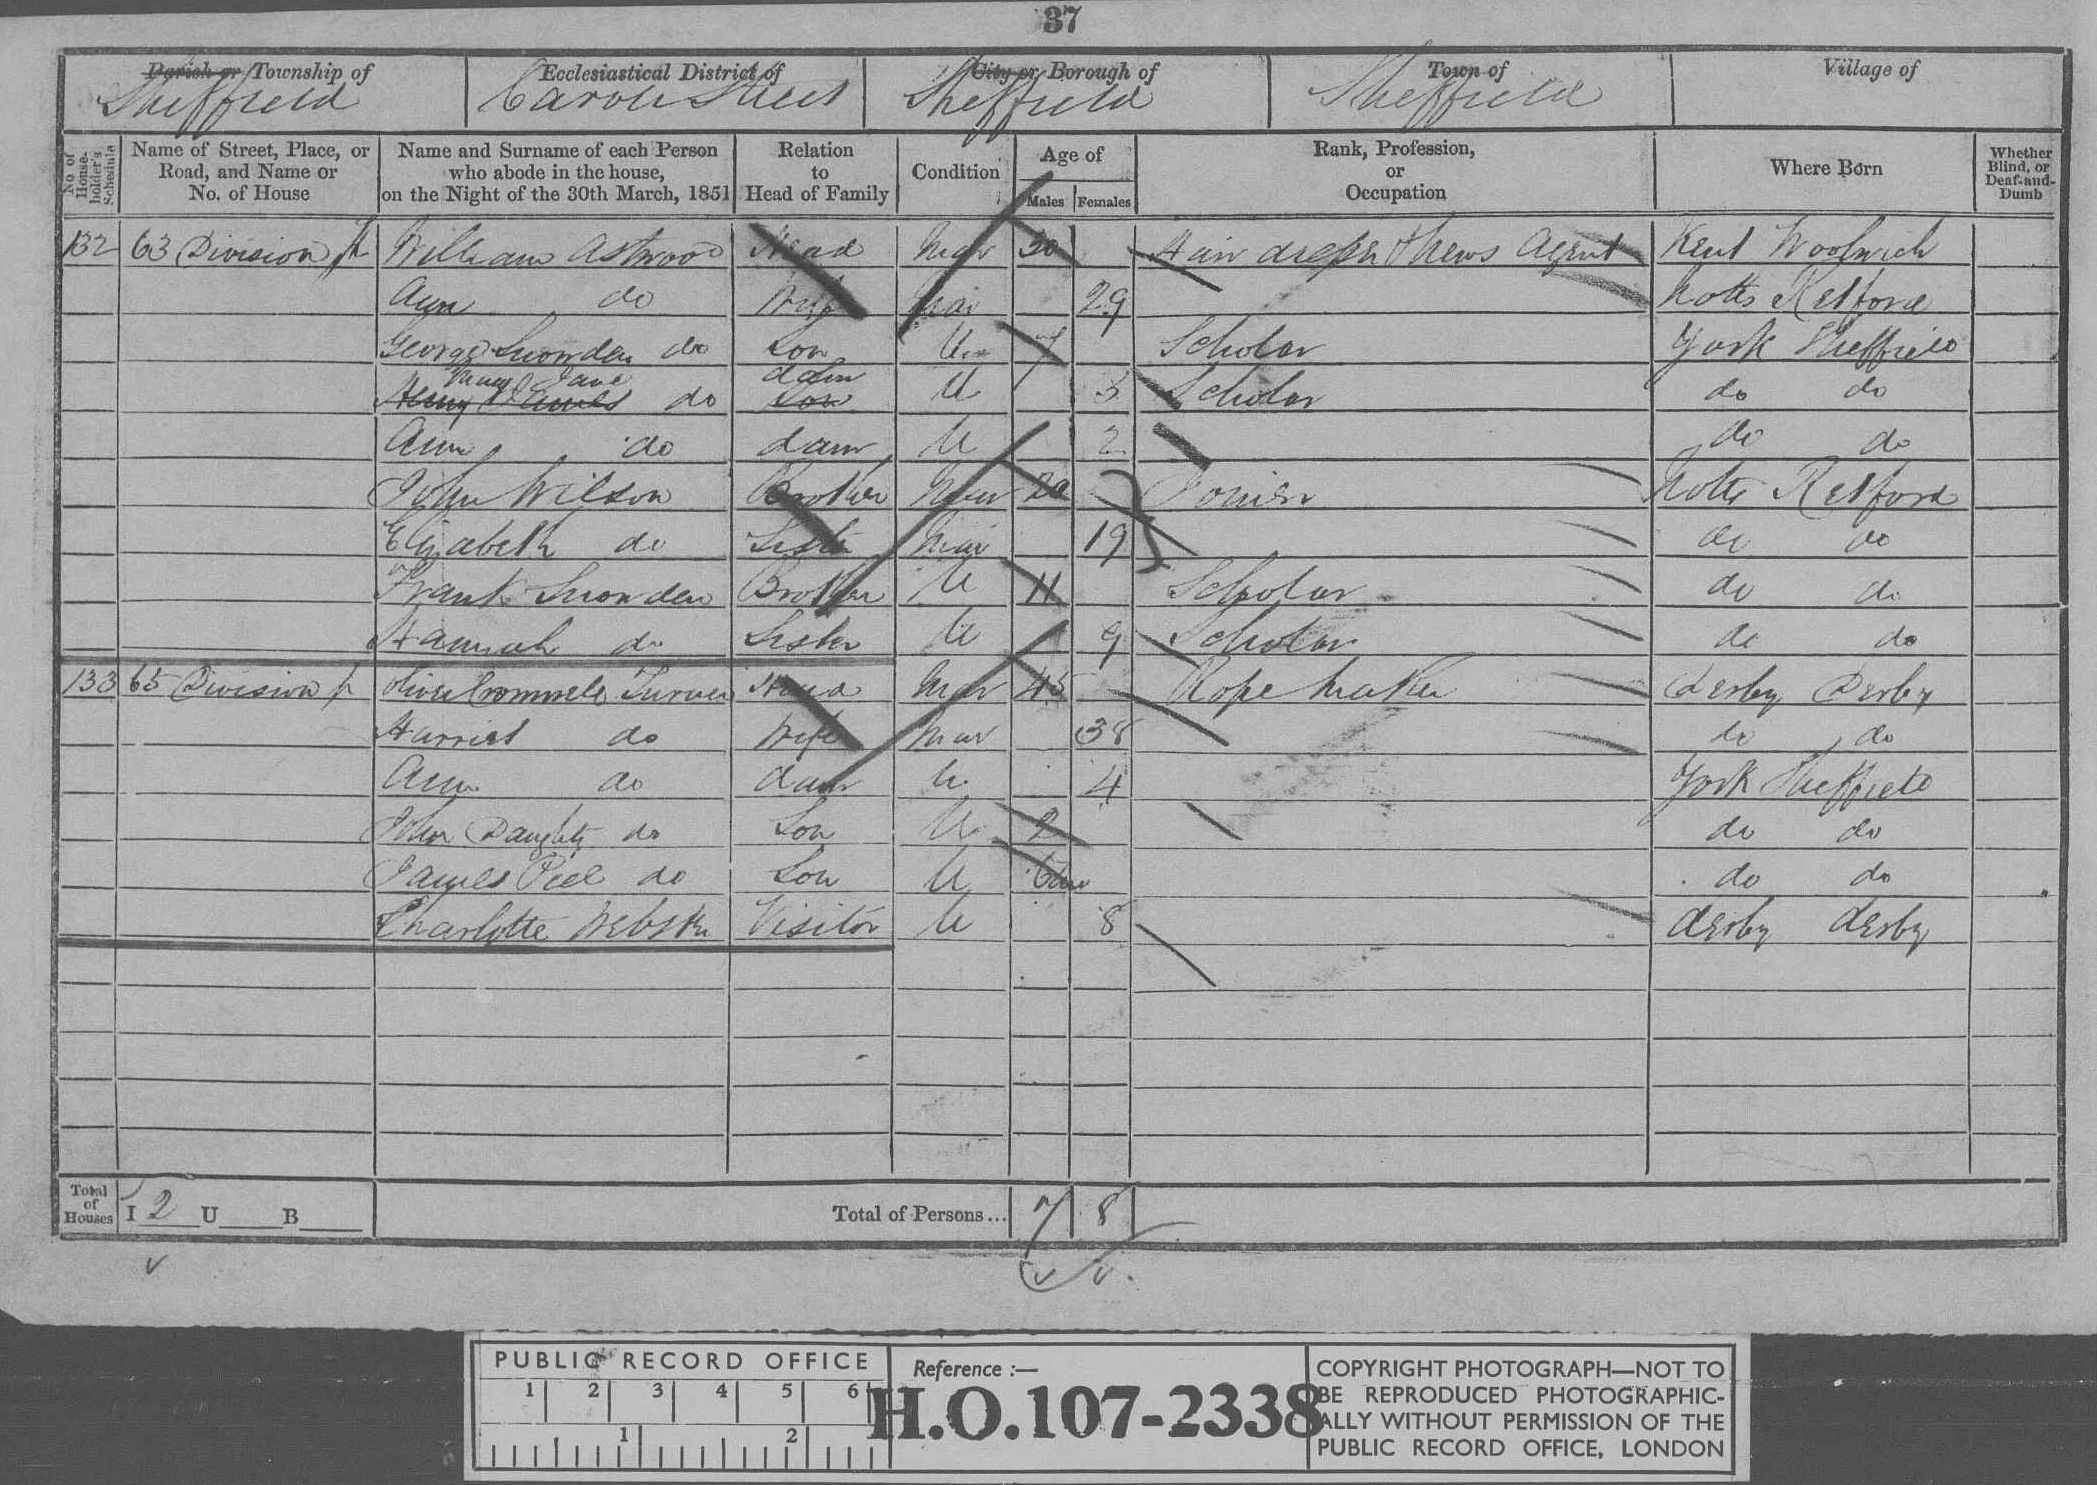 37
Parish or Township of Ecclesiastical District of City or Borough of Town of Village of
Sheffield Street Sheffield Sheffield
No of House-holder's Schedule Name of Street, Place, or Road, and Name or No. of House Name and Surname of each Person who abode in the house, on the Night of the 30th March, 1851 Relation to Head of Family Condition Age of Males Females Rank, Profession, or Occupation Where Born Whether Blind, or Deaf-and-Dumb
132 63 Division St William Astwood Head Mar 30 Hair dresser & News Agent Kent Woolwich
Ann do Wife Mar 29 Notts Retford
George Snowden do Son Un 7 Scholar York Sheffield
Mary Jane daur
Henry James do Son U 5 Scholar do do
Ann do daur U 2 do do
John Wilson Brother Mar 20 Joiner Notts Retford
Elizabeth do Sister Mar 19 do do
Frank Snowden Brother U 11 Scholar do do
Hannah do Sister U 9 Scholar do do
133 65 Division St Oliver Cromwell Turner Head Mar 45 Rope Maker Derby Derby
Harriet do Wife Mar 38 do do
Ann do daur U 4 York Sheffield
John Daughty do Son U 2 do do
James Peel do Son U 6 mo do do
Charlotte Webster Visitor U 8 Derby Derby
Total of Houses I 2 U B Total of Persons... 7 8
PUBLIC RECORD OFFICE
1 2 3 4 5 6
1 2
Reference :—
H.O.107-2338
COPYRIGHT PHOTOGRAPH—NOT TO
BE REPRODUCED PHOTOGRAPHIC-
ALLY WITHOUT PERMISSION OF THE
PUBLIC RECORD OFFICE, LONDON